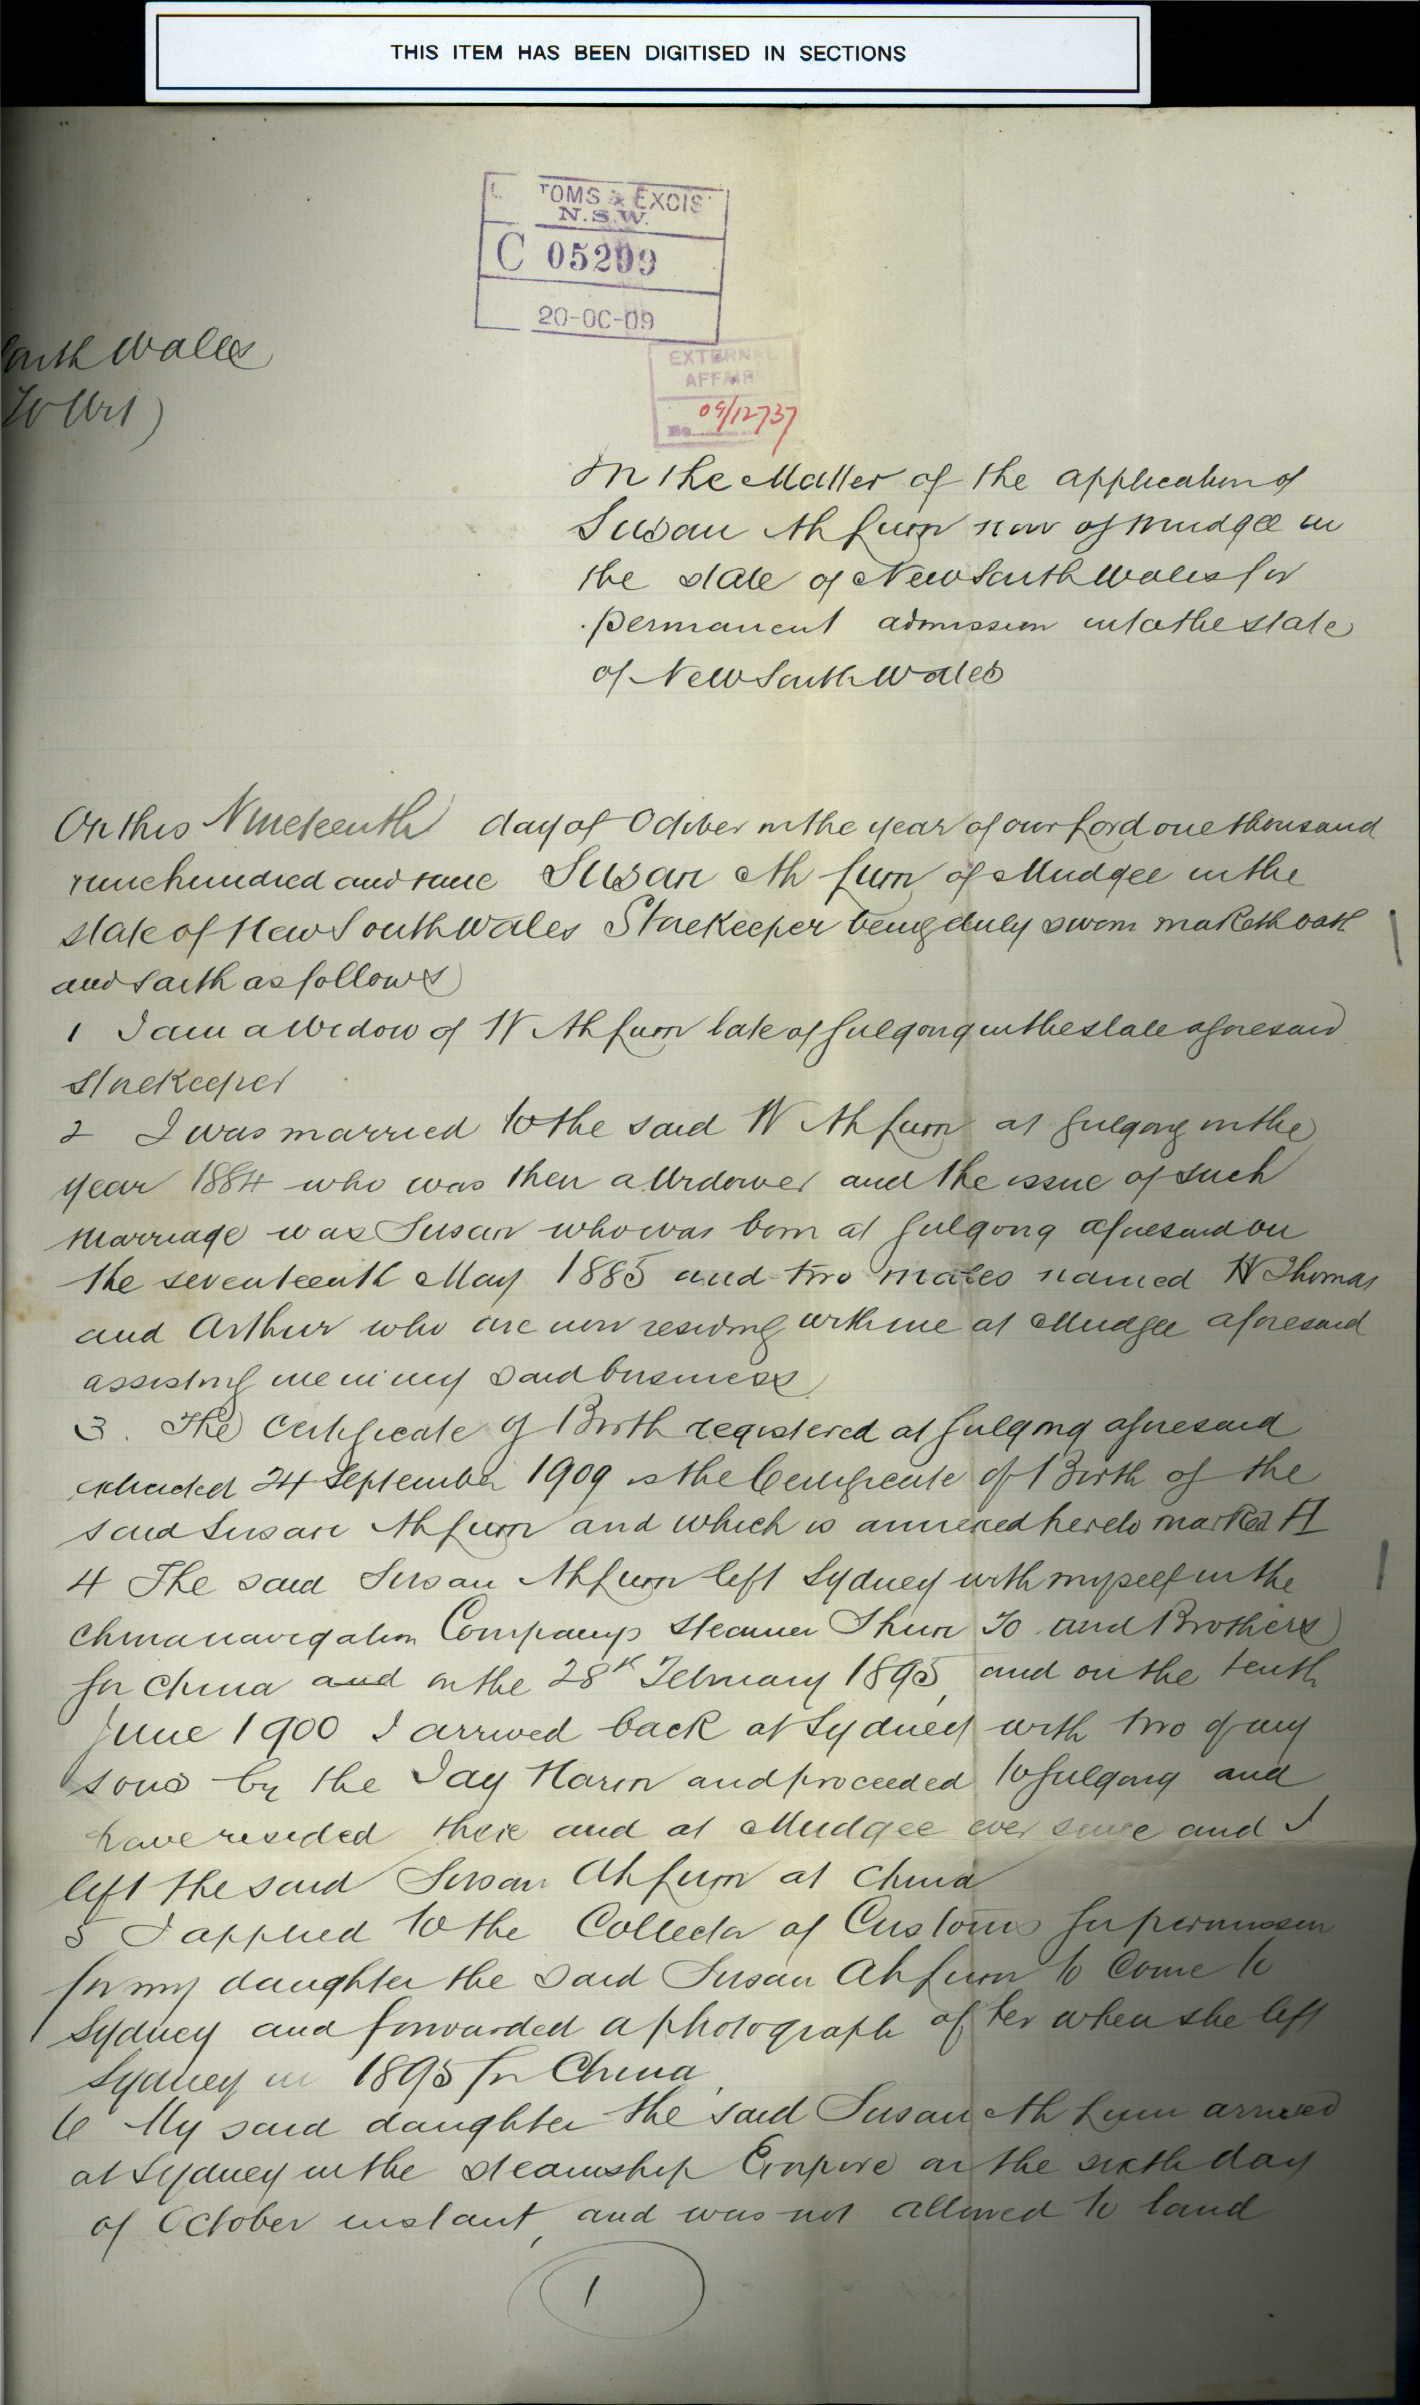 THIS ITEM HAS BEEN DIGITISED IN SECTIONS
TOMS & EXCIS
N.S.W.
C 05299
20-OC-09
EXTERNAL
AFFAIR
No 09/12737
outh Wales
To Wit)
In the Matter of the application of
Susan Ah Lum now of Mudgee in
the state of New South Wales for
permanent admission into the state
of New South Wales
On this Nineteenth day of October in the year of our Lord one thousand
nine hundred and nine Susan Ah Lum of Mudgee in the
state of New South Wales Storekeeper being duly sworn maketh oath
and saith as follows
1 I am a Widow of W Ah Lum late of Gulgong in the state aforesaid
storekeeper
2 I was married to the said W Ah Lum at Gulgong in the
year 1884 who was then a Widower and the issue of such
marriage was Susan who was born at Gulgong aforesaid on
the seventeenth May 1885 and two males named W Thomas
and Arthur who are now residing with me at Mudgee aforesaid
assisting me in my said business
3. The Certificate of Birth registered at Gulgong aforesaid
extracted 24 September 1909 is the Certificate of Birth of the
said Susan Ah Lum and which is annexed hereto marked A
4 The said Susan Ah Lum left Sydney with myself in the
China navigation Companys steamer and Brothers
for China and on the 28th February 1895, and on the tenth
June 1900 I arrived back at Sydney with two of my
sons by the and proceeded to Gulgong and
have resided there and at Mudgee ever since and I
left the said Susan Ah Lum at China
5 I applied to the Collector of Customs for permission
for my daughter the said Susan Ah Lum to Come to
Sydney and forwarded a photograph of her when she left
Sydney in 1895 for China,
6 My said daughter the said Susan Ah Lum arrived
at Sydney in the steamship Empire on the sixth day
of October instant, and was not allowed to land
1